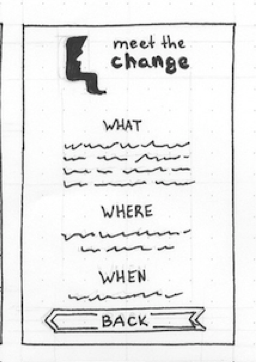 meet the
change
WHAT
WHERE
WHEN
BACK